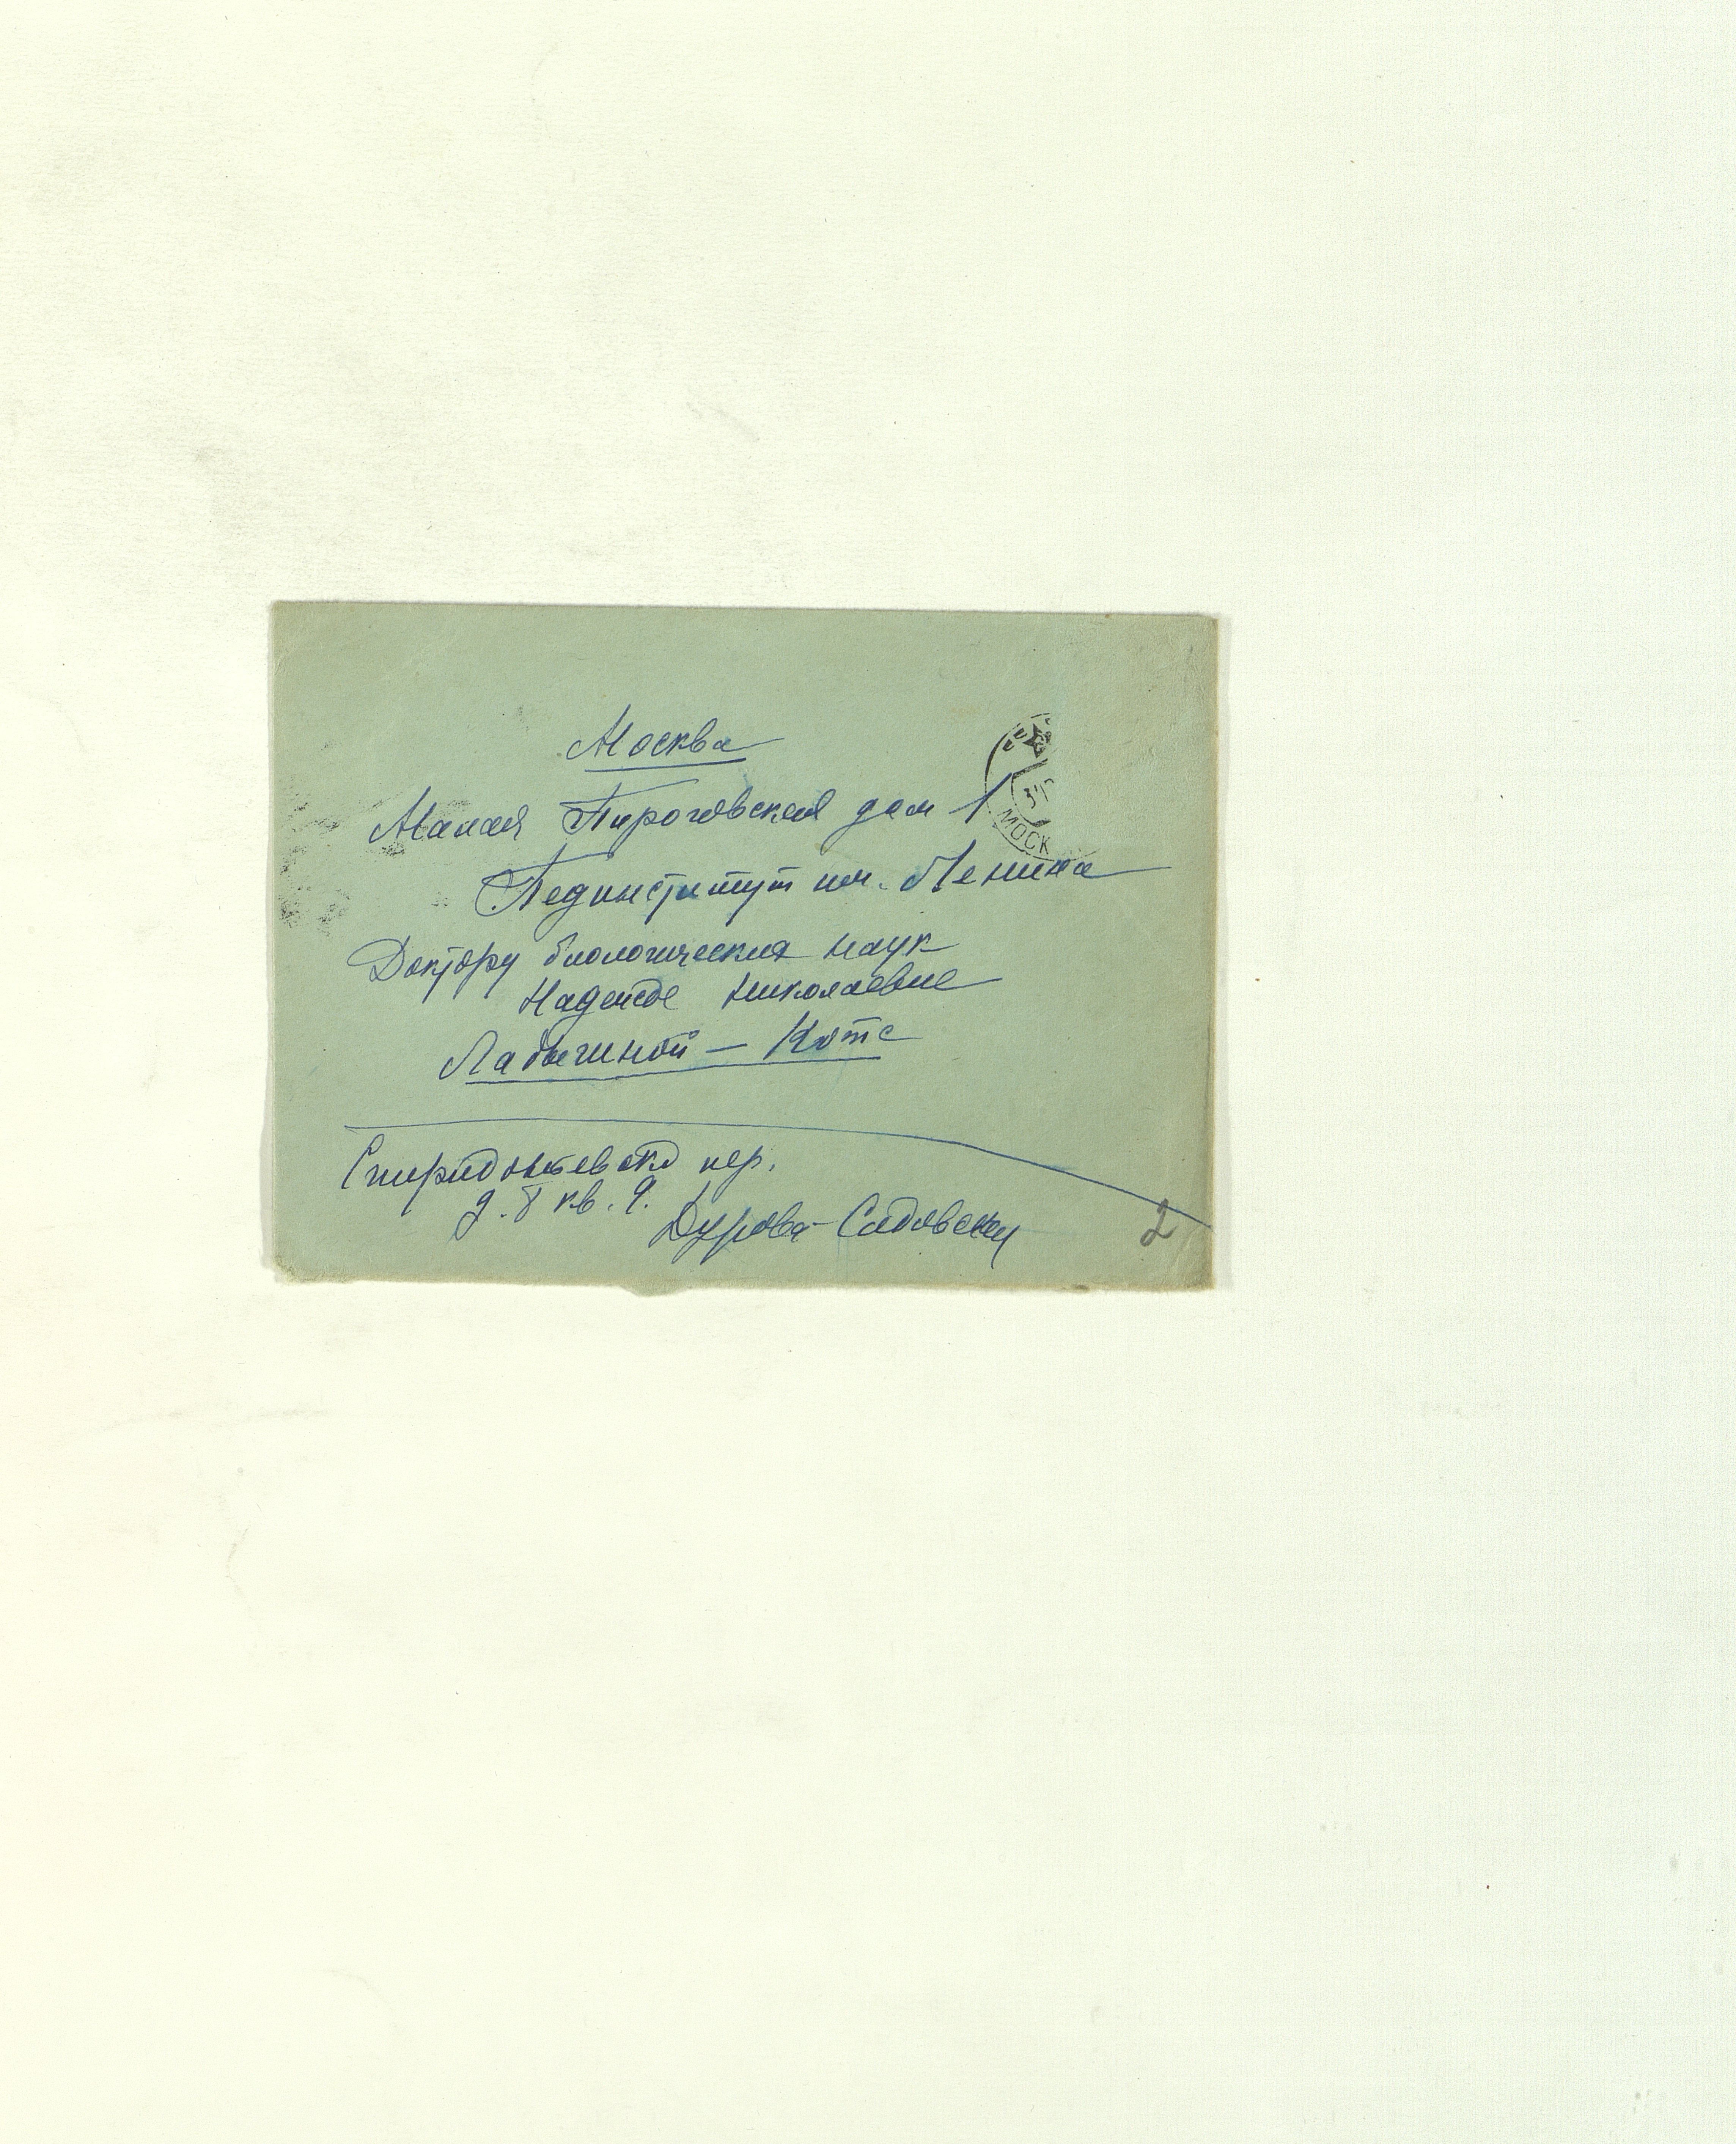 Москва
Малая Пироговская дом 1
Пединститут им. Ленина
Доктору биологических наук
Надежде Николаевне
Ладыгиной – Котс
Спиридоньевский пер.
д. 8 кв. 9.
Дурова-Садовская
2
МОСК